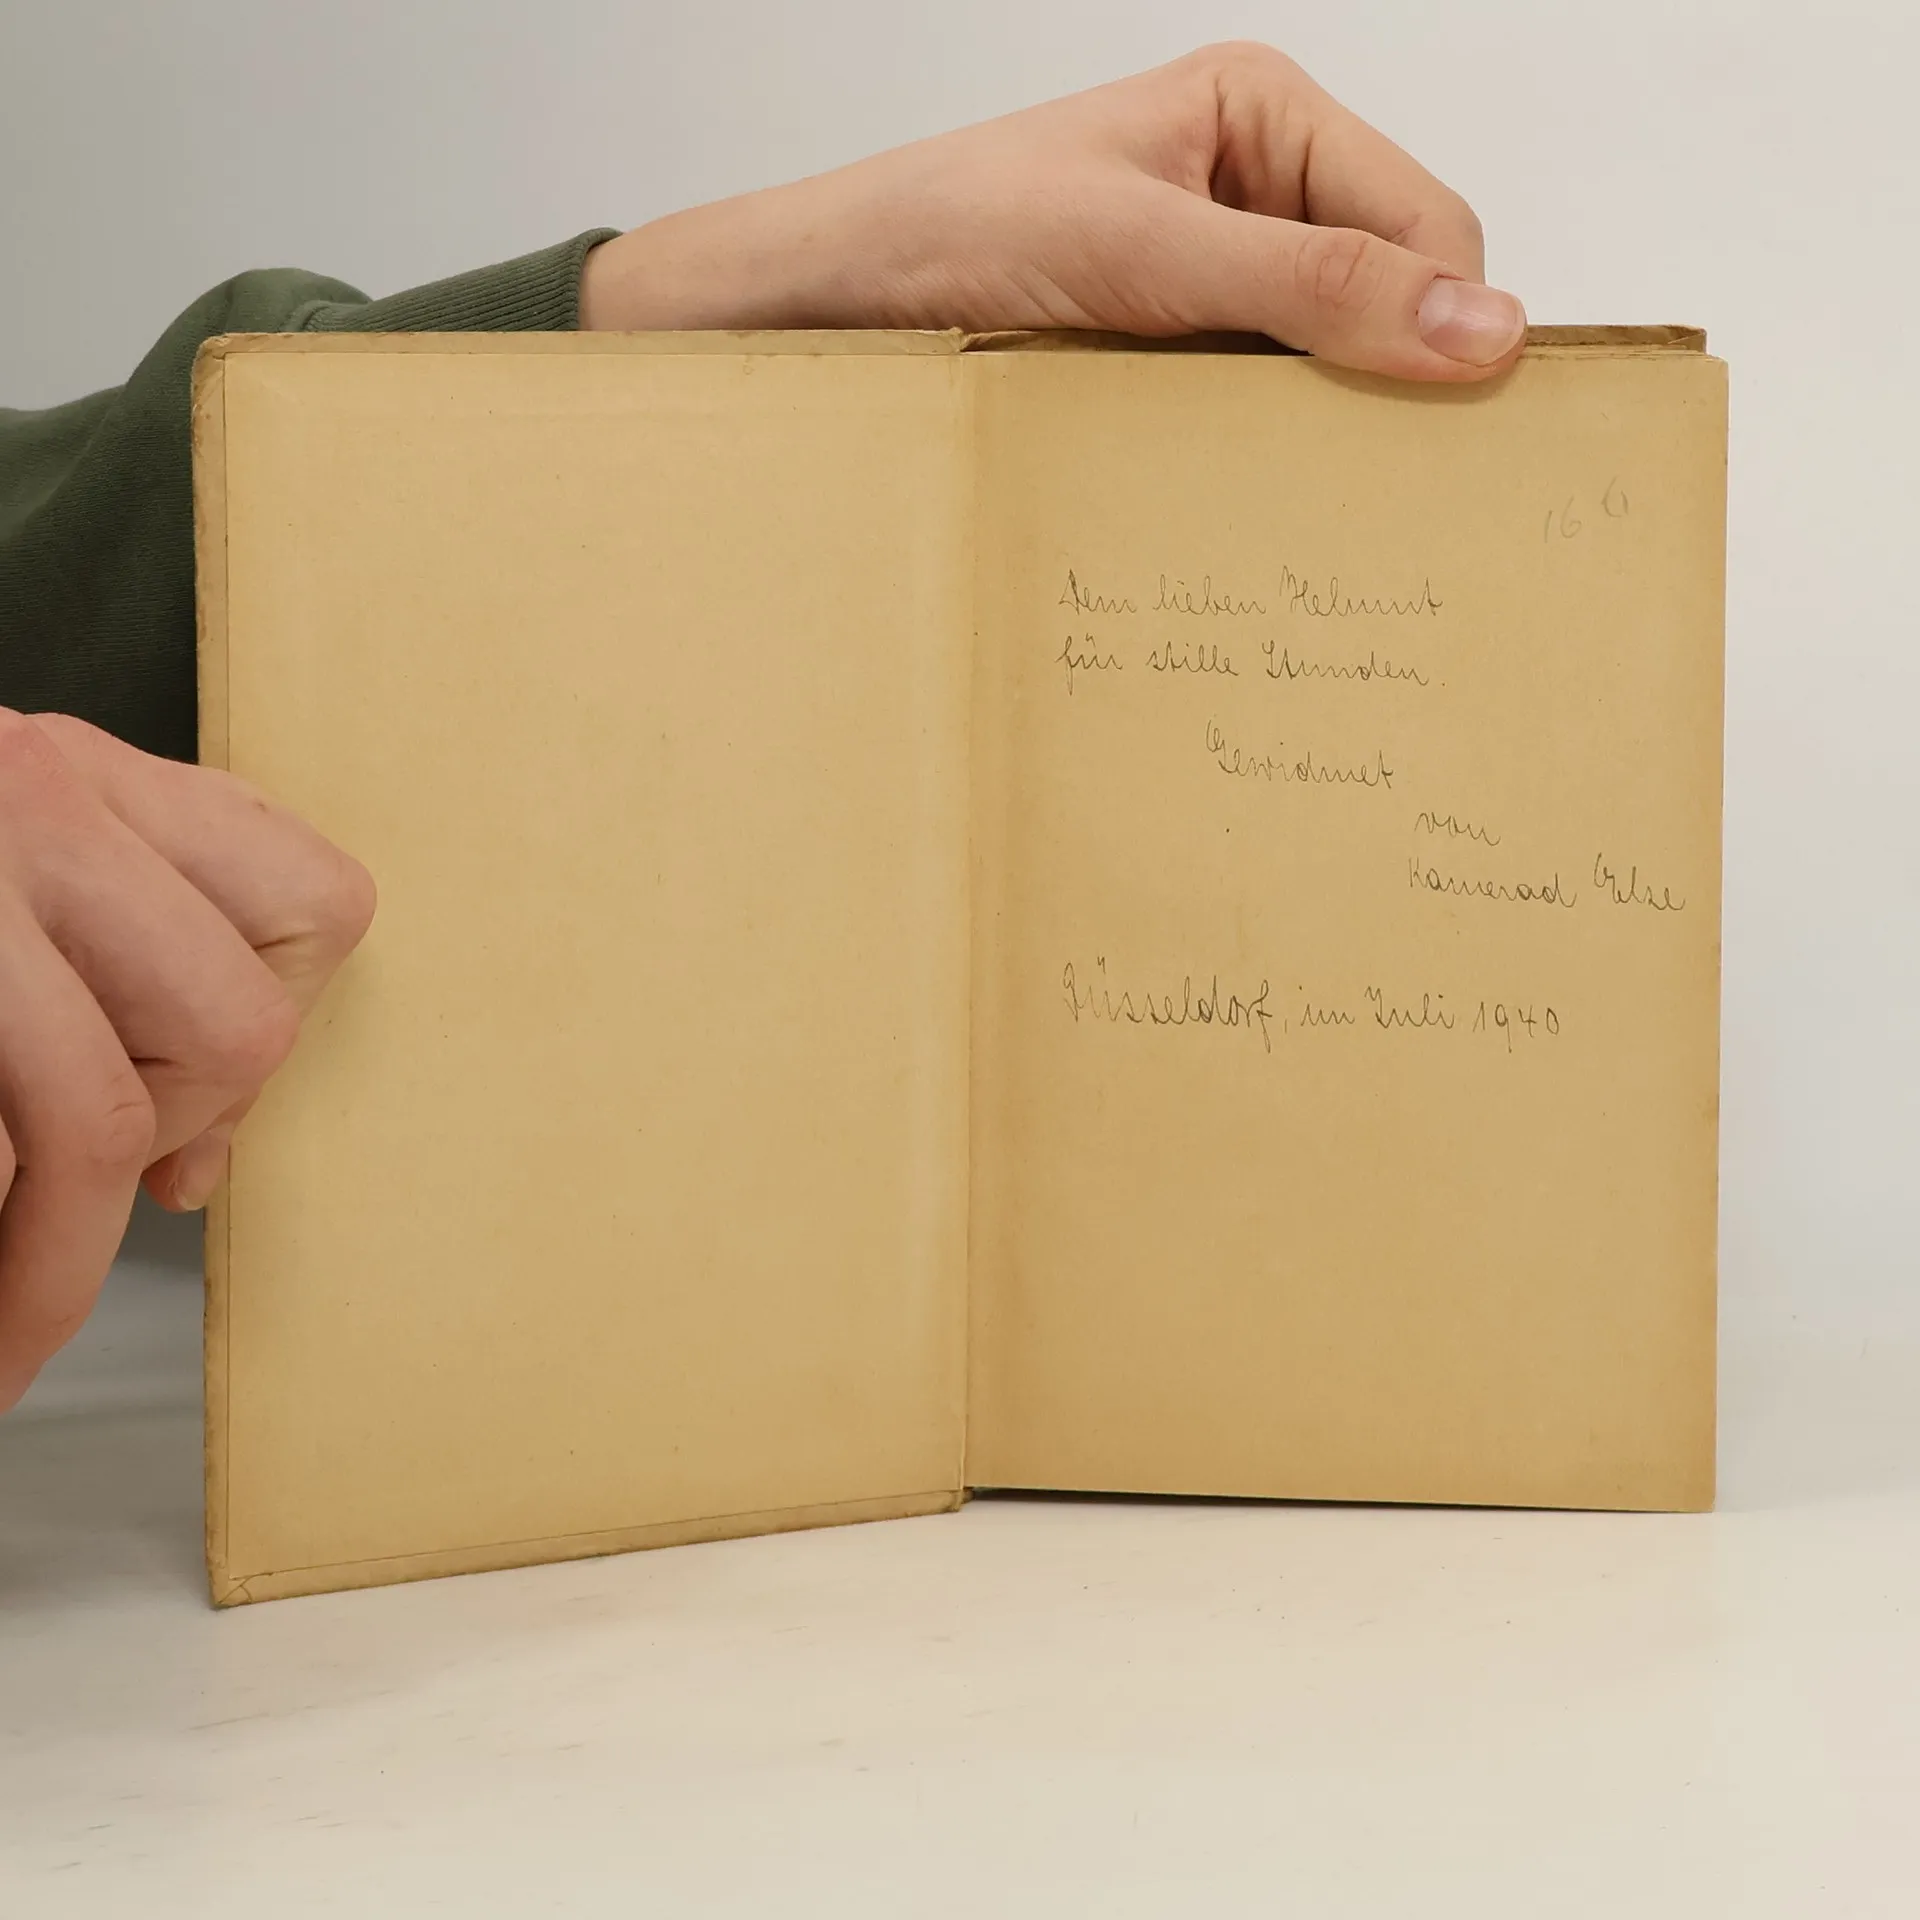 16
Dem lieben Helmut
für stille Stunden.
Gewidmet
von
Kamerad Else
Düsseldorf, im Juli 1940